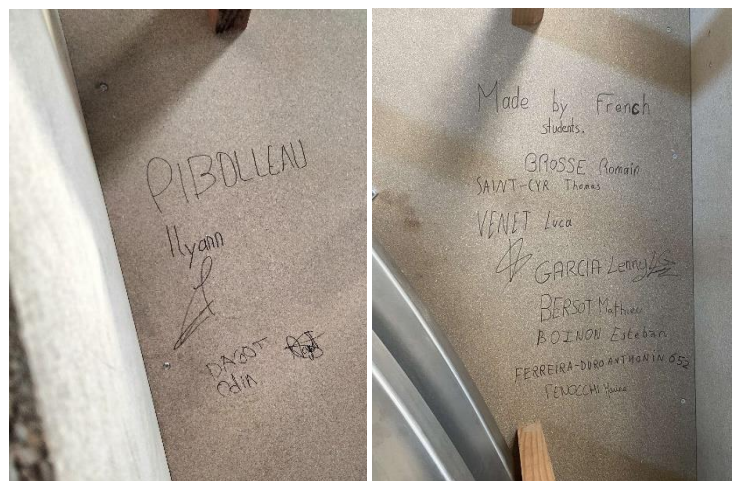 PIBOLLEAU
Ilyann
DAGOT
Odin
Made by French
students.
GROSSE Romain
SAINT-CYR Thomas
VENET Luca
GARCIA Lenny
BERSOT Mathieu
BOINON Esteban
FERREIRA-DURO ANTHONIN 652
TENOCCHI